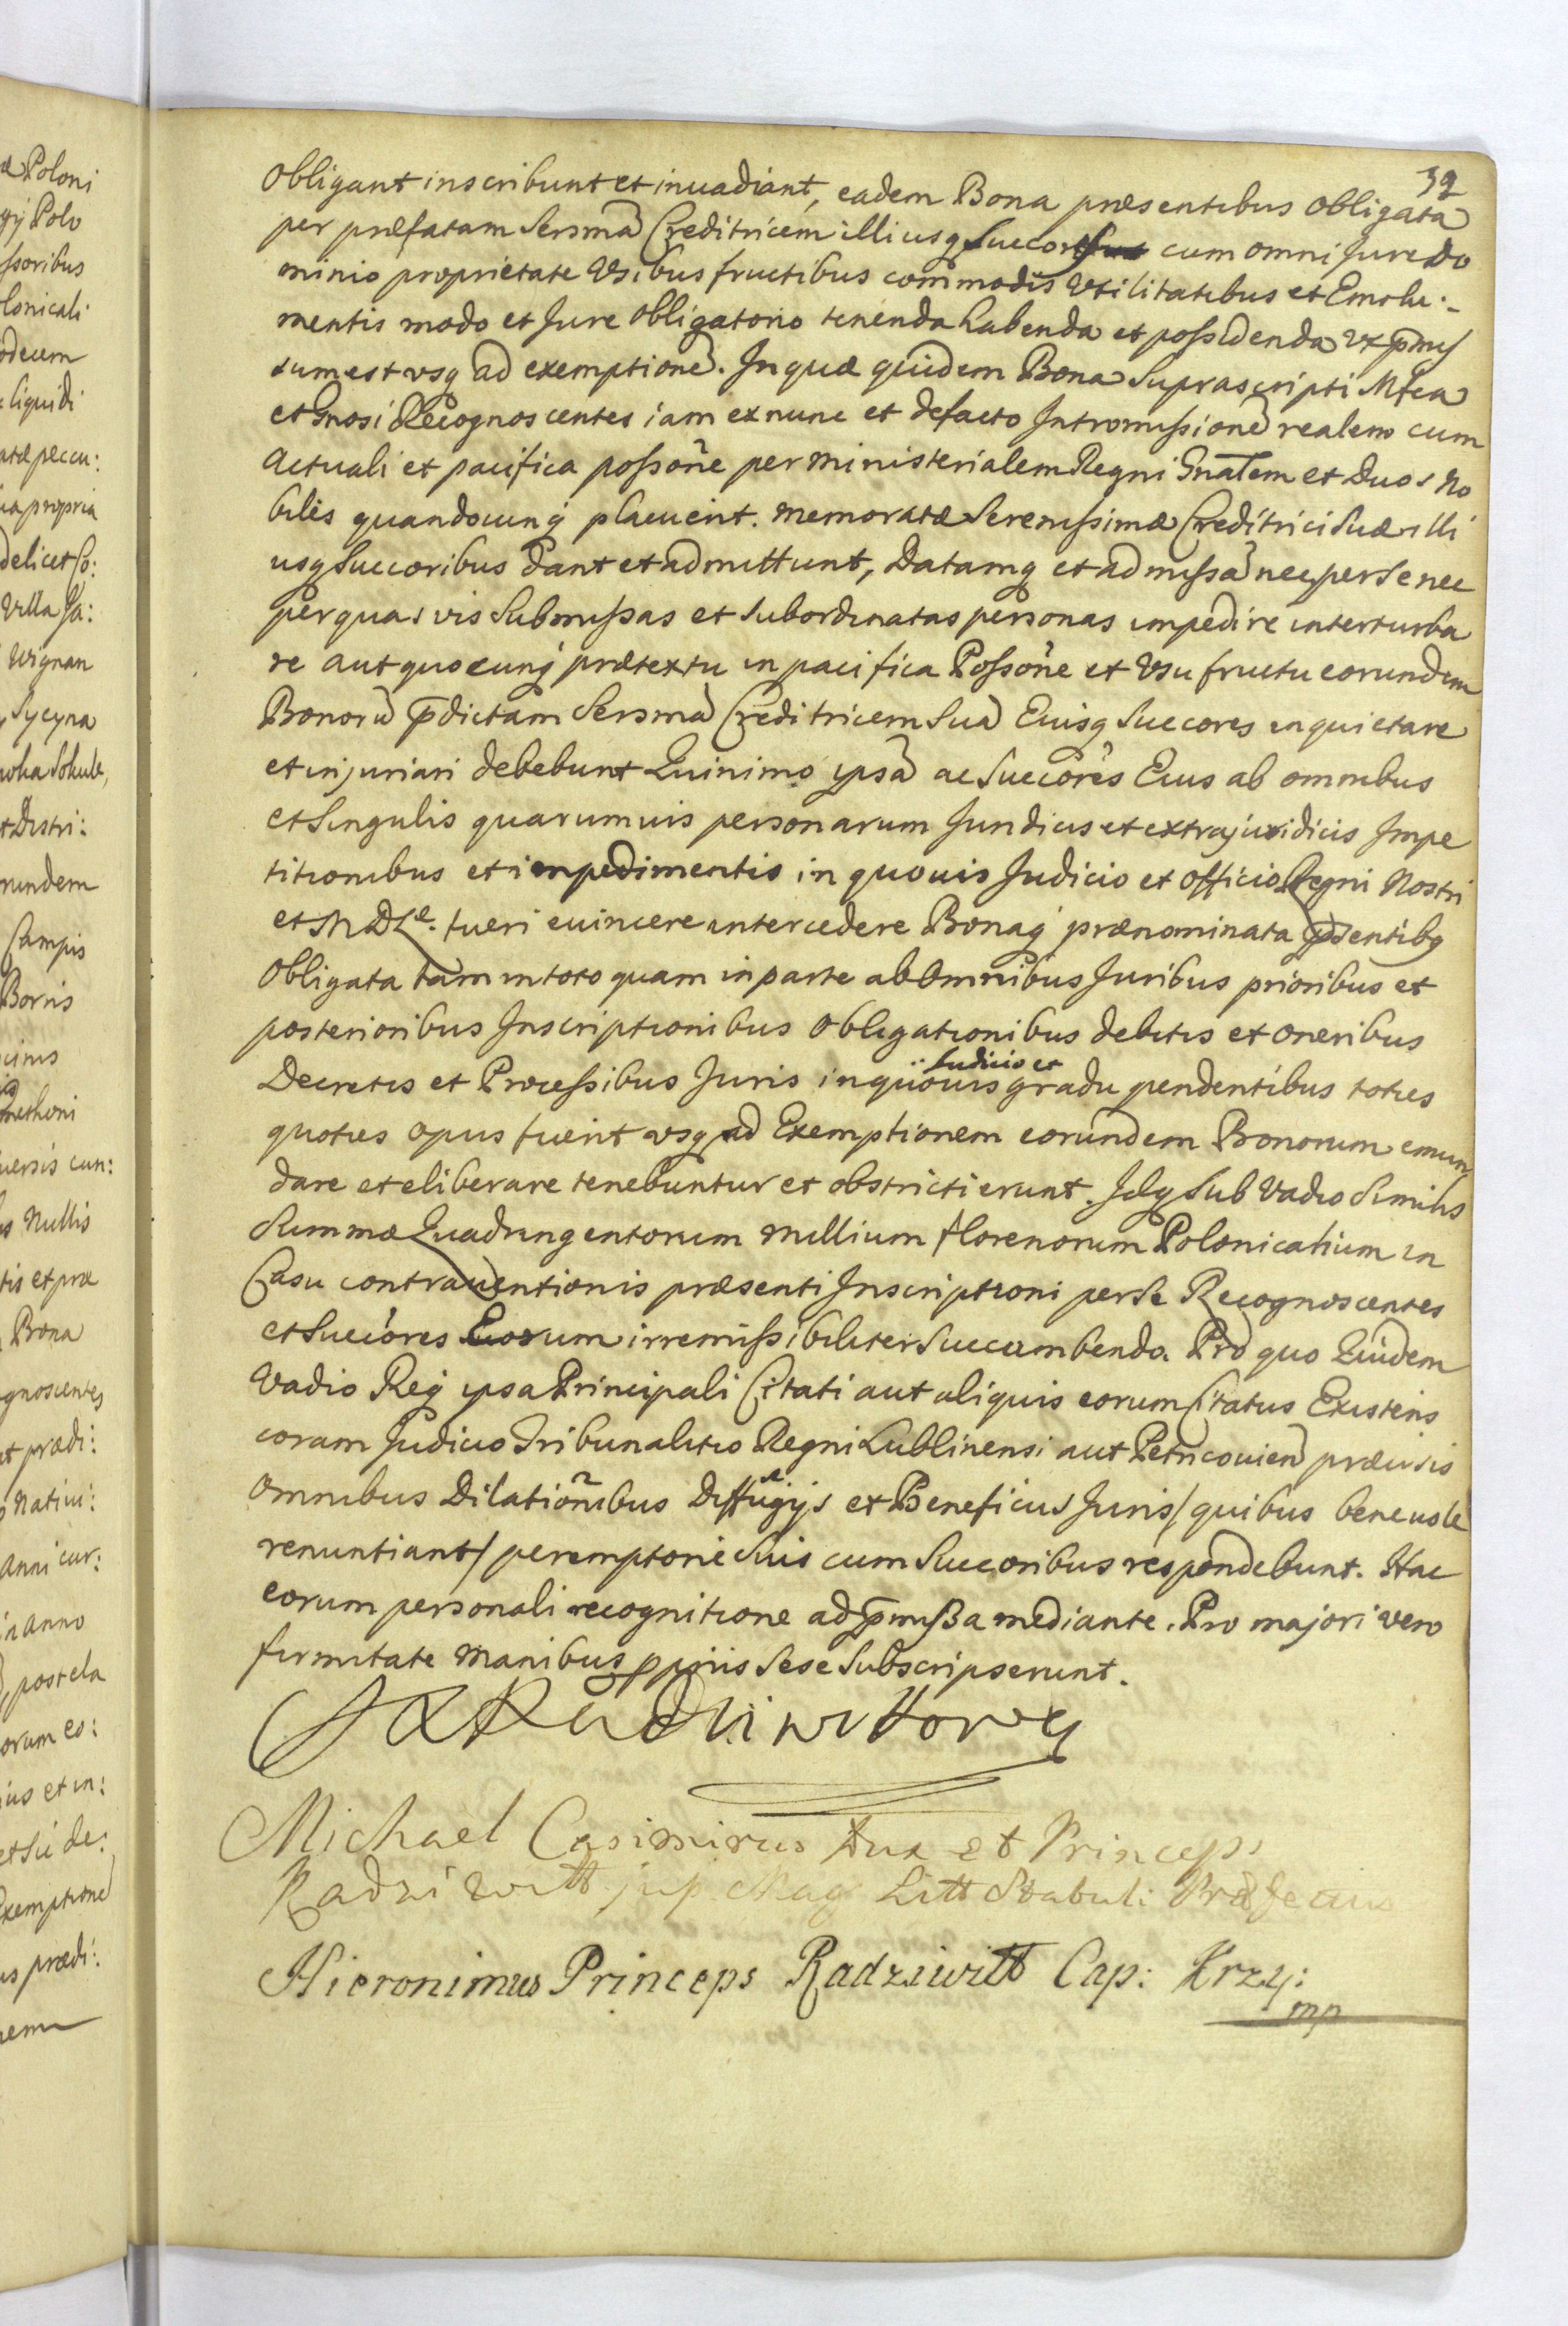 32
obligant inscribunt et inuadiant, eadem Bona præsentibus obligata
per præfatam Sersmã Creditricem illiusq Succor cum omni Jure Do
minio proprietate Usibus fructibus commodis Utilitatibus et Emolu:
mentis modo et Jure obligatorio tenenda habenda et possidenda ut p̄mis
sum est vsq ad exemptionẽ. In quæ quidem Bona Suprascripti Mfca
et Gnosi Recognoscentes iam ex nunc et de facto Intromissionẽ realem cum
Actuali et pacifica possoñe per ministerialem Regni Gnãlem et Duos No
biles quandocunq placuerit. memoratæ Serenissimæ Creditrici Suæ illi
usq Succoribus Dant et admittunt, Datamq et admissã nec per se nec
per quas vis Submissas et Subordinatas personas impedire interturba
re aut quocunq prætextu in pacifica Possoñe et Usu fructu eorundem
Bonorũ p̄dictam Sersmã Creditricem Suã Eiusq Succores inquietare
et injuriari debebunt Quinimo ipsã ac Succores Eius ab omnibus
et Singulis quarumuis personarum Juridicis et extrajuridicis Impe
titionibus et impedimentis in quouis Judicio et officio Regni Nostri
et M D L. tueri euincere intercedere Bonaq prænominata p̄sentibq
obligata tam in toto quam in parte ab Omnibus Juribus prioribus et
posterioribus Inscriptionibus Obligationibus debitis et oneribus
Decretis et Processibus Juris in quouis Judicio et gradu pendentibus toties
quoties opus fuerit vsq ad Exemptionem eorundem Bonorum emun
dare et eliberare tenebuntur et obstricti erunt. Idq Sub Vadio Similis
Summæ Quadringentorum millium florenorum Polonicalium in
Casu contrauentionis præsenti Inscriptioni per Se Recognoscentes
et Succores Eorum irremissibiliter Succumbendo. Pro quo Quidem
Vadio Req ipsa Principali Citati aut aliquis eorum Citatus Existens
coram Judicio Tribunalitio Regni Lublinensi aut Petricouien præcisis
omnibus Dilationibus Diffugijs et Beneficijs Juris / quibus bene vole
renuntiant / peremptorie Suis cum Succoribus respondebunt. Hac
eorum personali recognitione ad p̄missa mediante. Pro majori vero
firmitate manibus pprijs Sese Subscripserunt.
Michael Casimirus Dux et Princeps
Radziwitt sup. Mag. Litt Stabuli Præfectus
Hieronimus Princeps Radziwitt Cap: Krzy:
mp